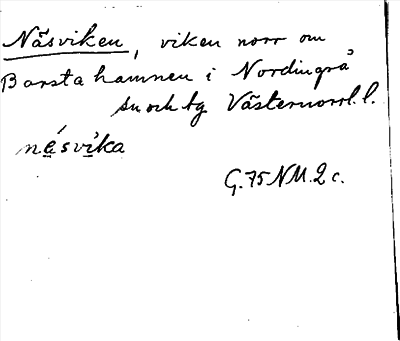 Näsviken, viken norr om
Barsta hamnen i Nordingrå
sn och tg Västernorrl. l.
nésvika
G. 75 NM. 2 c.